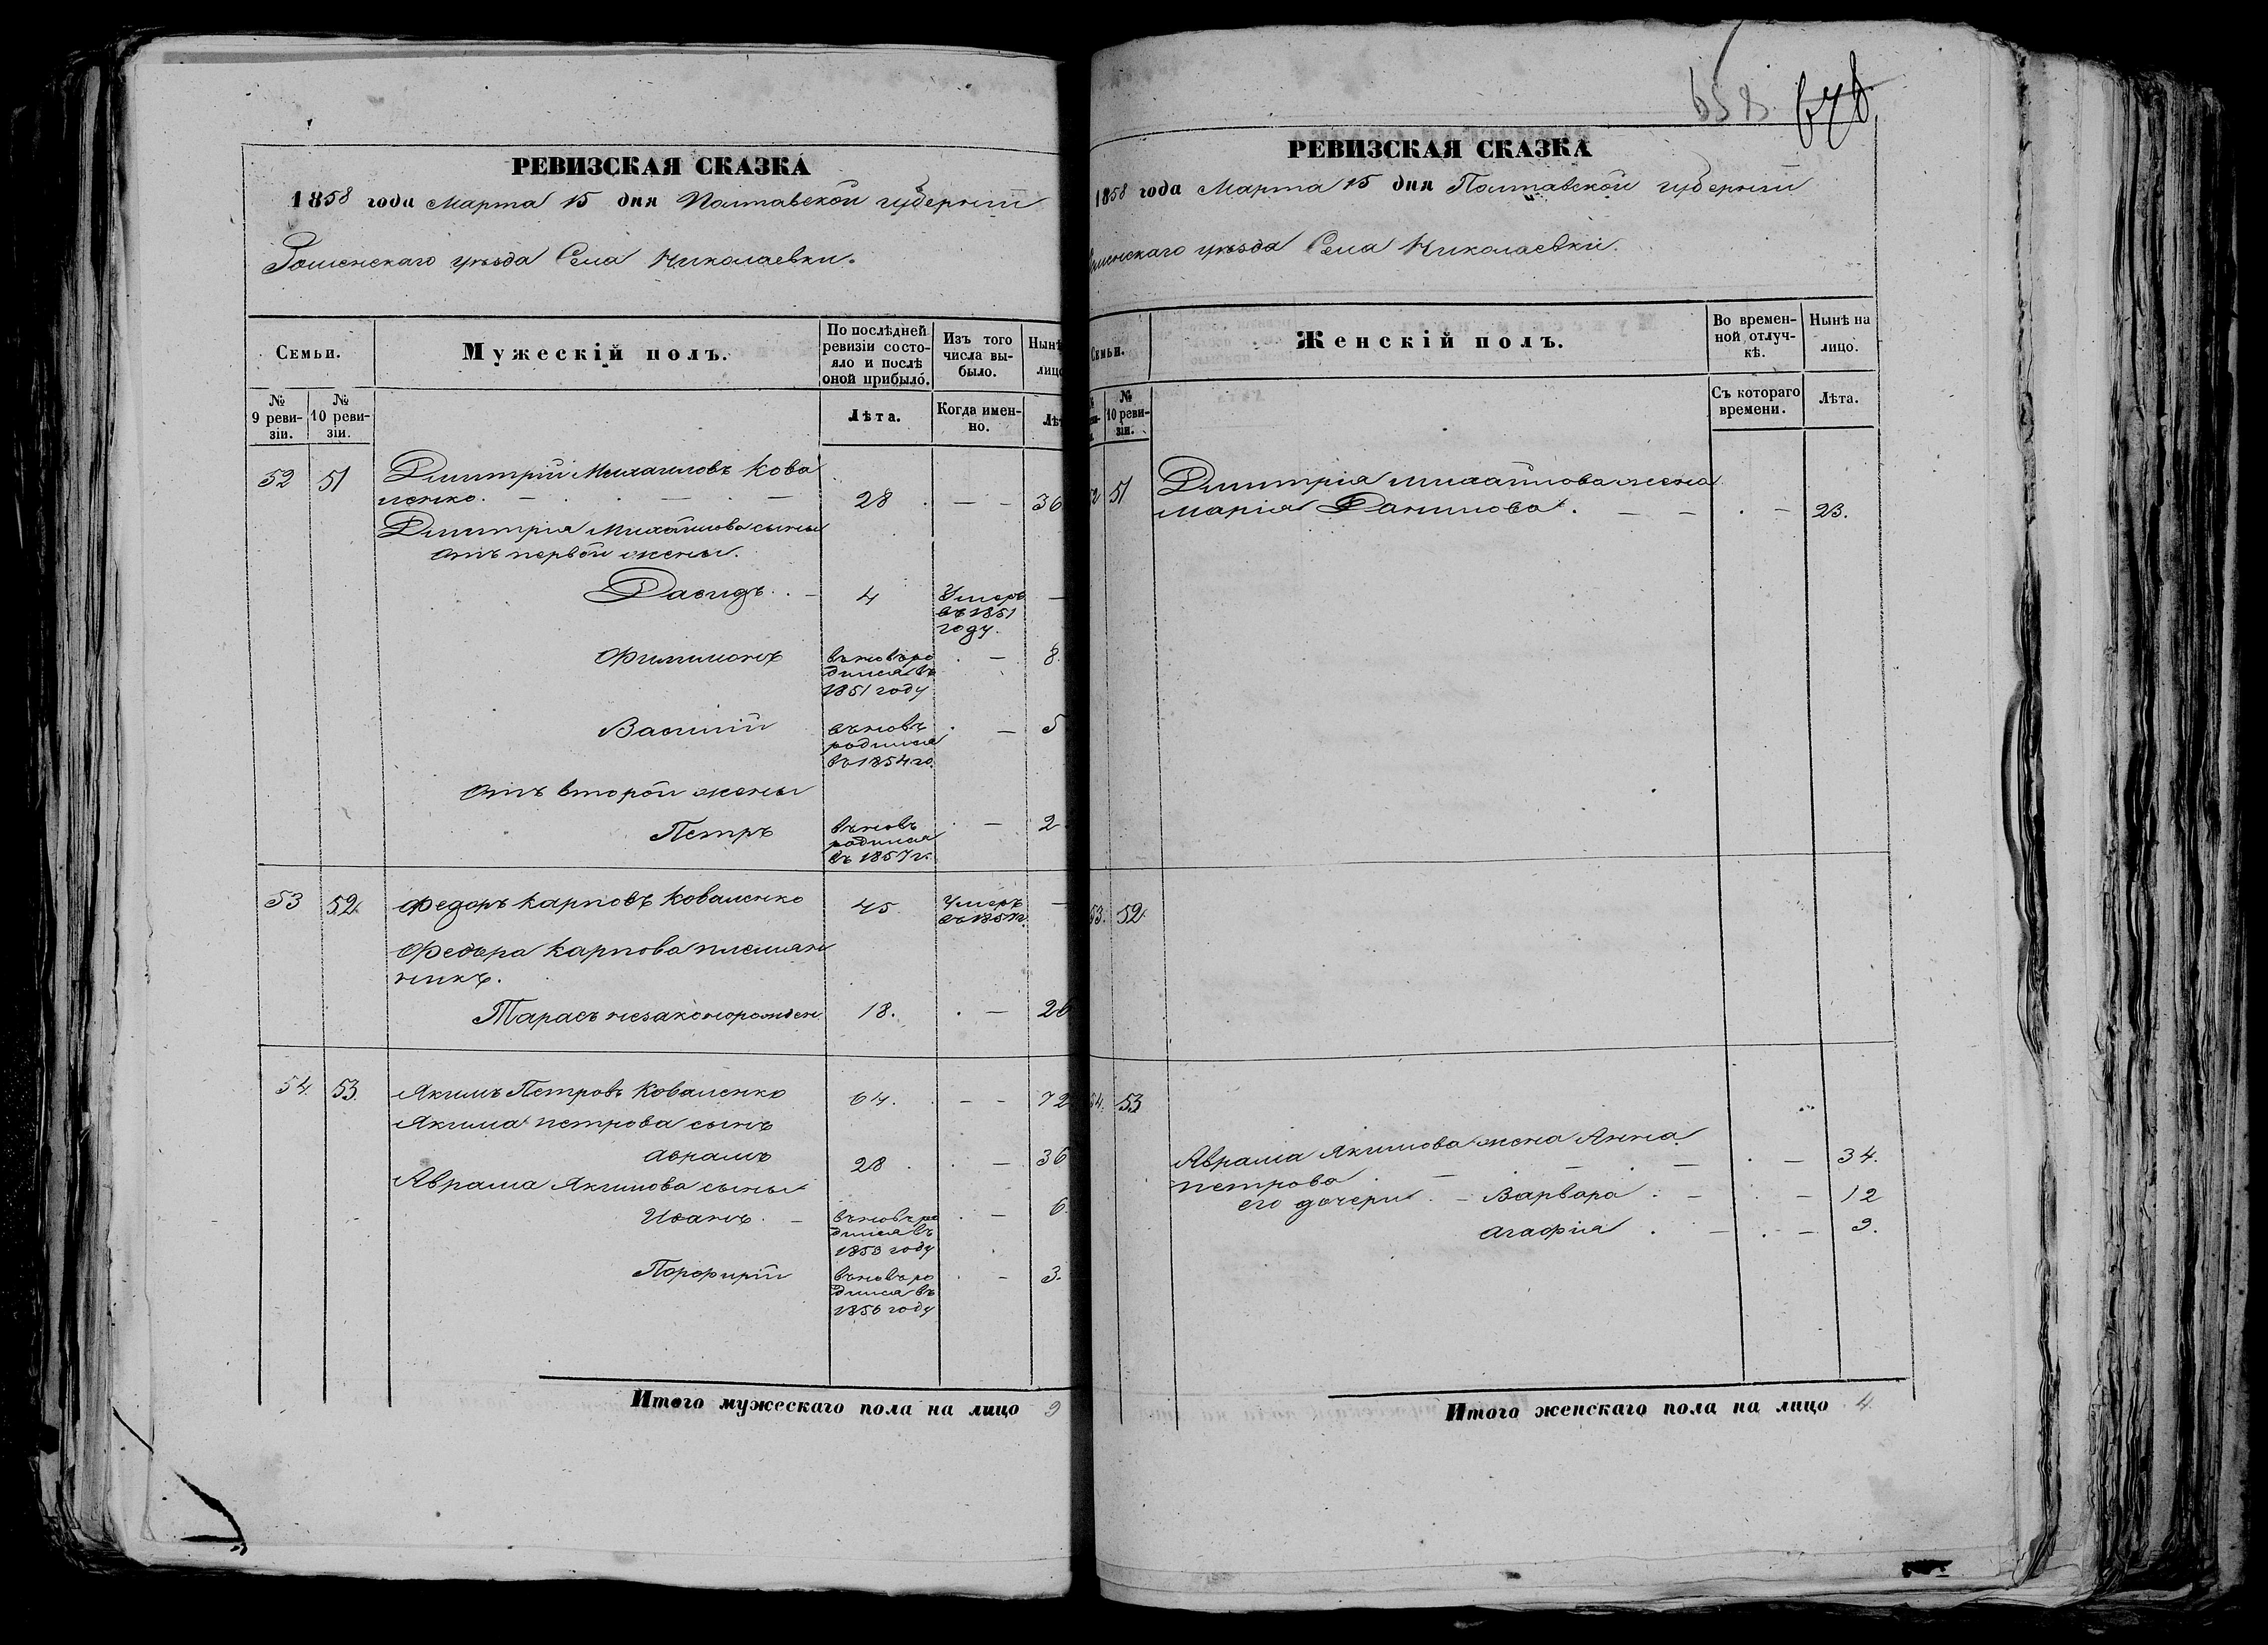 РЕВИЗСКАЯ СКАЗКА
1858 года Марта 15 дня Полтавской губернии
Роменскаго уезда Села Николаевки.
Семьи.
Мужескій полъ.
По послѣдней ревизіи состояло и послѣ оной прибыло.
Изъ того числа выбыло.
Нынѣ
лицо
№ 9 ревизіи.
№ 10 ревизіи.
Лѣта.
Когда именно.
Лѣт
52 51 Дмитрій Михаиловъ Кова
ленко. 28 36
Дмитрія Михайлова сыны
отъ первой жены.
Давидъ 4 Умеръ
въ 1851
году.
Филимонъ вновь ро 8.
дился въ
1851 году
Василій вновь 5
родился
въ 1854 го.
отъ второй жены
Петръ вновь 2
родился
въ 1857 г.
53 52 Федоръ Карповъ Коваленко 45 Умеръ
Федора Карпова племян
никъ.
Тарасъ незаконорожден 18. 26
54. 53. Якимъ Петровъ Коваленко 64. 72
Якима Петрова сынъ
Аврамъ 28 36
Аврама Якимова сыны
Иванъ. вновь ро 6.
дился въ
1853 году
Порфирій вновь ро 3.
дился въ
1856 году
Итого мужескаго пола на лицо 9
658. 678
РЕВИЗСКАЯ СКАЗКА
1858 года Марта 15 дня Полтавской губерніи
оменскаго уезда Села Николаевки.
Семьи.
Женскій полъ.
Во временной отлучкѣ.
Нынѣ на лицо.
№ 10 ревизіи.
Съ котораго времени.
Лѣта.
2 51 Дмитрія Михайлова жена
Марія Данилова. 23.
53. 52.
54. 53
Аврама Якимова жена Анна 34.
Петрова
его дочери Варвара 12
Агафія 9.
Итого женскаго пола на лицо 4.